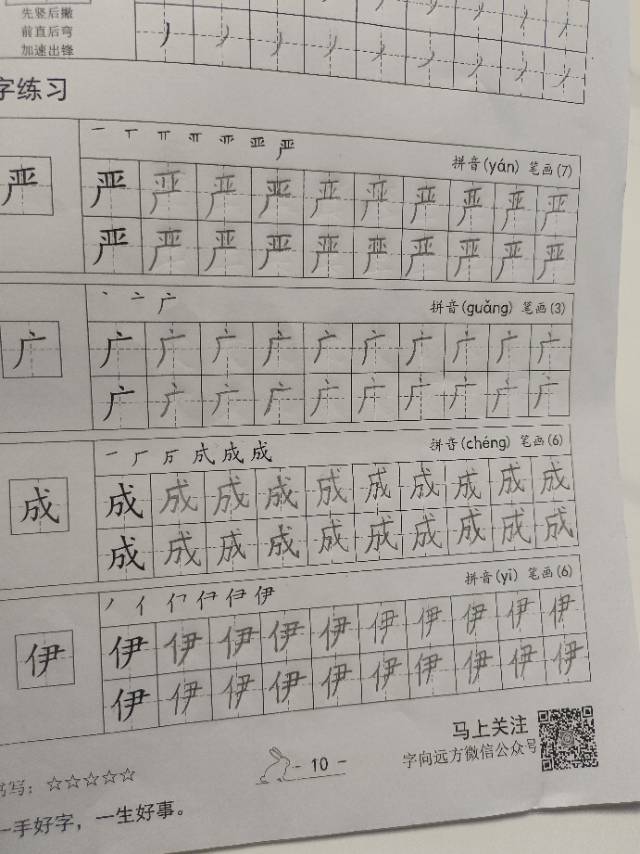 先竖后撇
前直后弯
加速出锋
字练习
一 丅 丌 亚 严
拼音(yán) 笔画(7)
严 严 严 严 严 严 严 严 严 严 严
严 严 严 严 严 严 严 严 严 严
丶 亠 广
拼音(guǎng) 笔画(3)
广 广 广 广 广 广 广 广 广 广 广
广 广 广 广 广 广 广 广 广 广
一 厂 成 成
拼音(chéng) 笔画(6)
成 成 成 成 成 成 成 成 成 成 成
成 成 成 成 成 成 成 成 成 成
丿 亻 伊
拼音(yī) 笔画(6)
伊 伊 伊 伊 伊 伊 伊 伊 伊 伊 伊
伊 伊 伊 伊 伊 伊 伊 伊 伊 伊
马上关注
字向远方微信公众号
- 10 -
书写：☆☆☆☆☆
一手好字，一生好事。